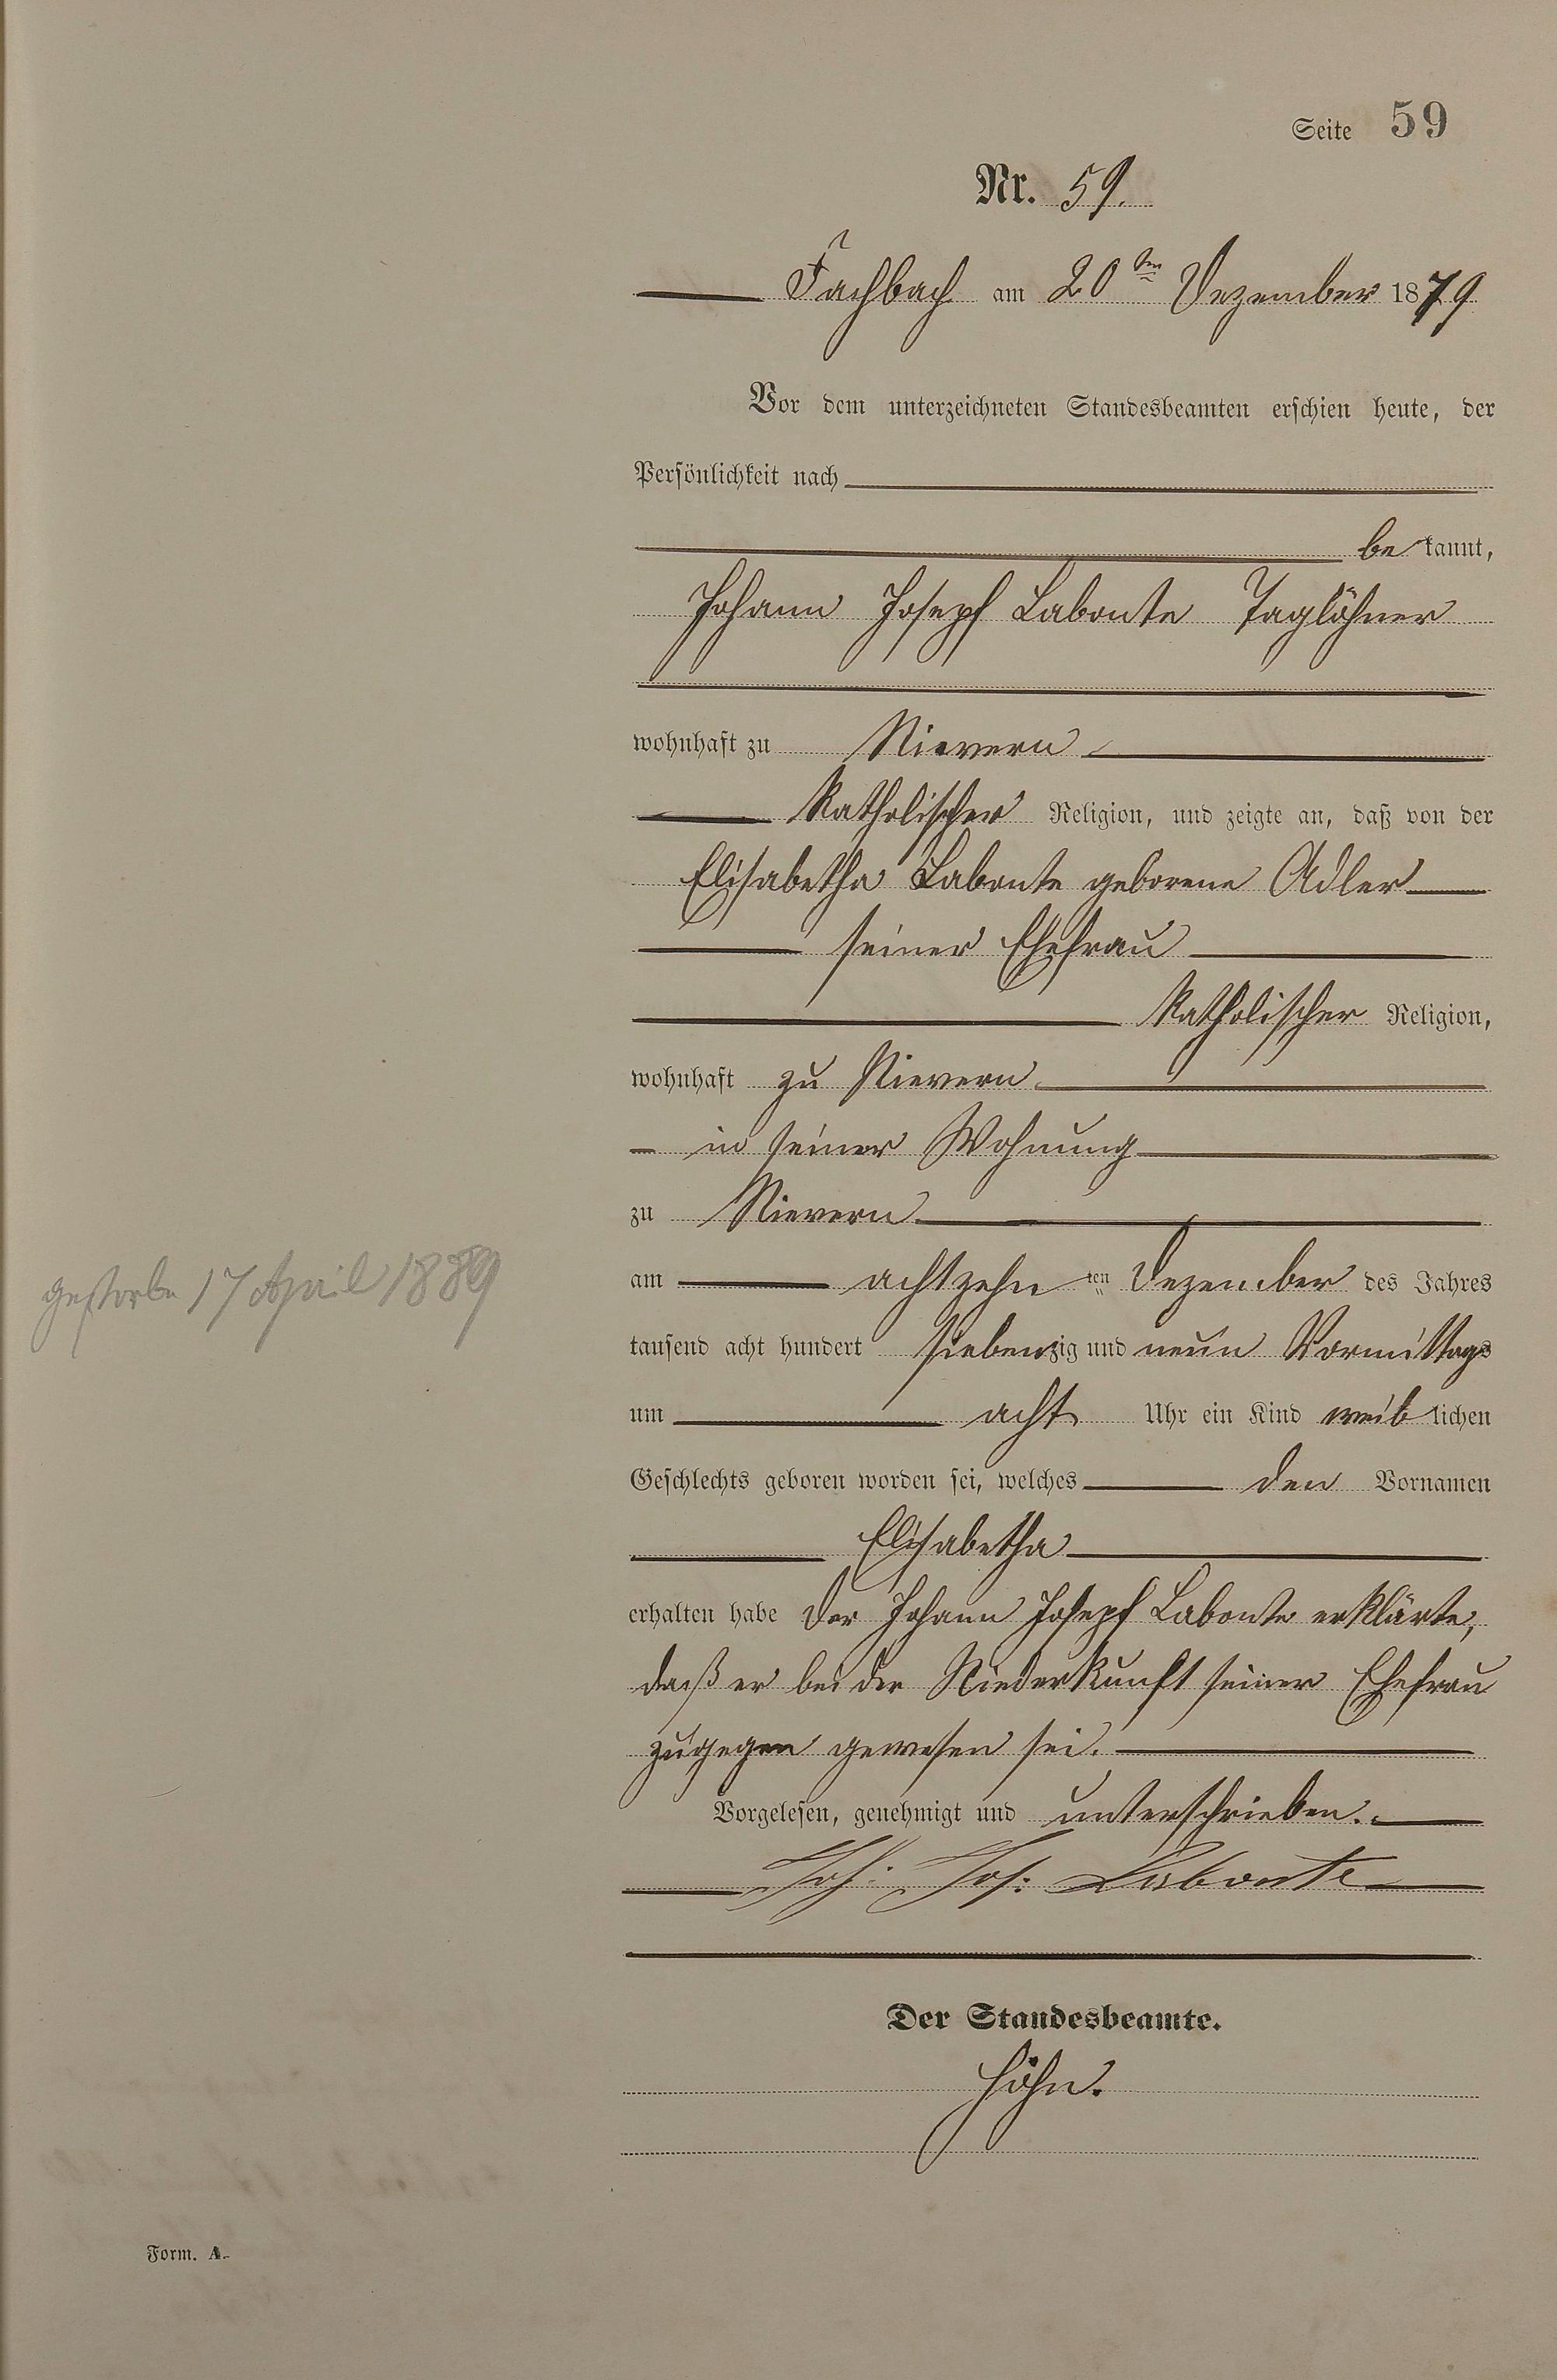 Seite 59
Nr. 59.
Fachbach am 20ten Dezember 1879
Vor dem unterzeichneten Standesbeamten erschien heute, der
Persönlichkeit nach
be kannt,
Johann Josepf Labonte Taglöhner
wohnhaft zu Nievern
Katholischer Religion, und zeigte an, daß von der
Elisabetha Labonte geborene Adler
seiner Ehefrau
Katholischer Religion,
wohnhaft zu Nievern
in seiner Wohnung
zu Nievern
am achtzehn ten Dezember des Jahres
tausend acht hundert siebenzig und neun Vormittags
um acht Uhr ein Kind weib lichen
Geschlechts geboren worden sei, welches den Vornamen
Elisabetha
erhalten habe Der Johann Josepf Labonte erklärte,
daß er bei der Niederkunft seiner Ehefrau
zugegen gewesen sei.
Vorgelesen, genehmigt und unterschrieben.
Joh: Jos: Labonte
Der Standesbeamte.
Höhn.
gestorbe 17 April 1889
Form. A.